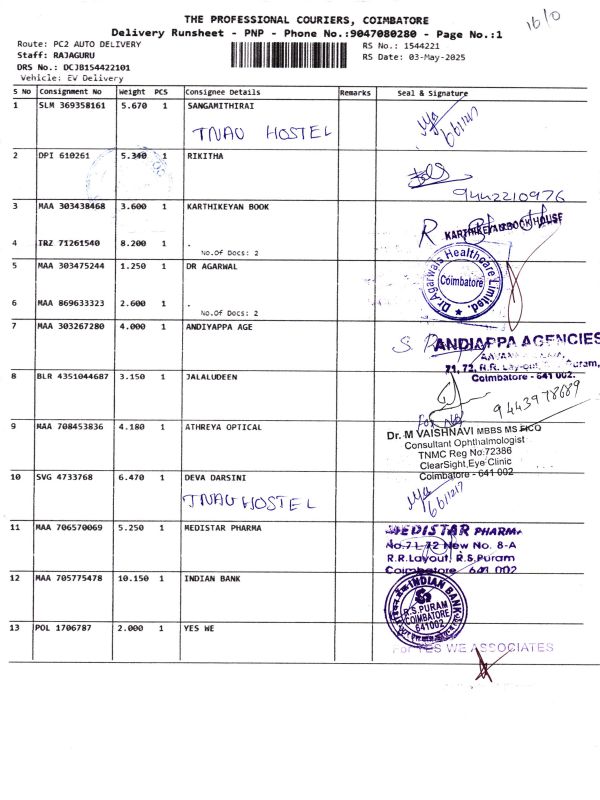 THE PROFESSIONAL COURIERS, COIMBATORE
16/0
Delivery Runsheet - PNP - Phone No.:9047080280 - Page No.:1
Route: PC2 AUTO DELIVERY
Staff: RAJAGURU
DRS No.: DCJB154422101
Vehicle: EV Delivery
RS No.: 1544221
RS Date: 03-May-2025
S No Consignment No Weight PCS Consignee Details Remarks Seal & Signature
1 SLM 369358161 5.670 1 SANGAMITHIRAI
TNAU HOSTEL
2 DPI 610261 5.340 1 RIKITHA
9442210976
3 MAA 303438468 3.600 1 KARTHIKEYAN BOOK
KARTHIKEYAN BOOK HOUSE
4 IRZ 71261540 8.200 1 .
No.Of Docs: 2
5 MAA 303475244 1.250 1 DR AGARWAL
Dr.Agarwals Healthcare Limited.
Coimbatore
6 MAA 869633323 2.600 1 .
No.Of Docs: 2
7 MAA 303267280 4.000 1 ANDIYAPPA AGE
ANDIAPPA AGENCIES
71, 72, R.R. Lay-out,
Coimbatore - 641 002.
8 BLR 4351044687 3.150 1 JALALUDEEN
9443978689
9 MAA 708453836 4.180 1 ATHREYA OPTICAL
Dr. M VAISHNAVI MBBS MS FICO
Consultant Ophthalmologist
TNMC Reg No:72386
ClearSight Eye Clinic
Coimbatore - 641 002
10 SVG 4733768 6.470 1 DEVA DARSINI
TNAU HOSTEL
11 MAA 706570069 5.250 1 MEDISTAR PHARMA
MEDISTAR PHARMA
No.71-72 New No. 8-A
R.R.Layout, R.S.Puram
Coimbatore 641 002
12 MAA 705775478 10.150 1 INDIAN BANK
INDIAN BANK
R.S.PURAM
COIMBATORE
641002
13 POL 1706787 2.000 1 YES WE
For YES WE ASSOCIATES